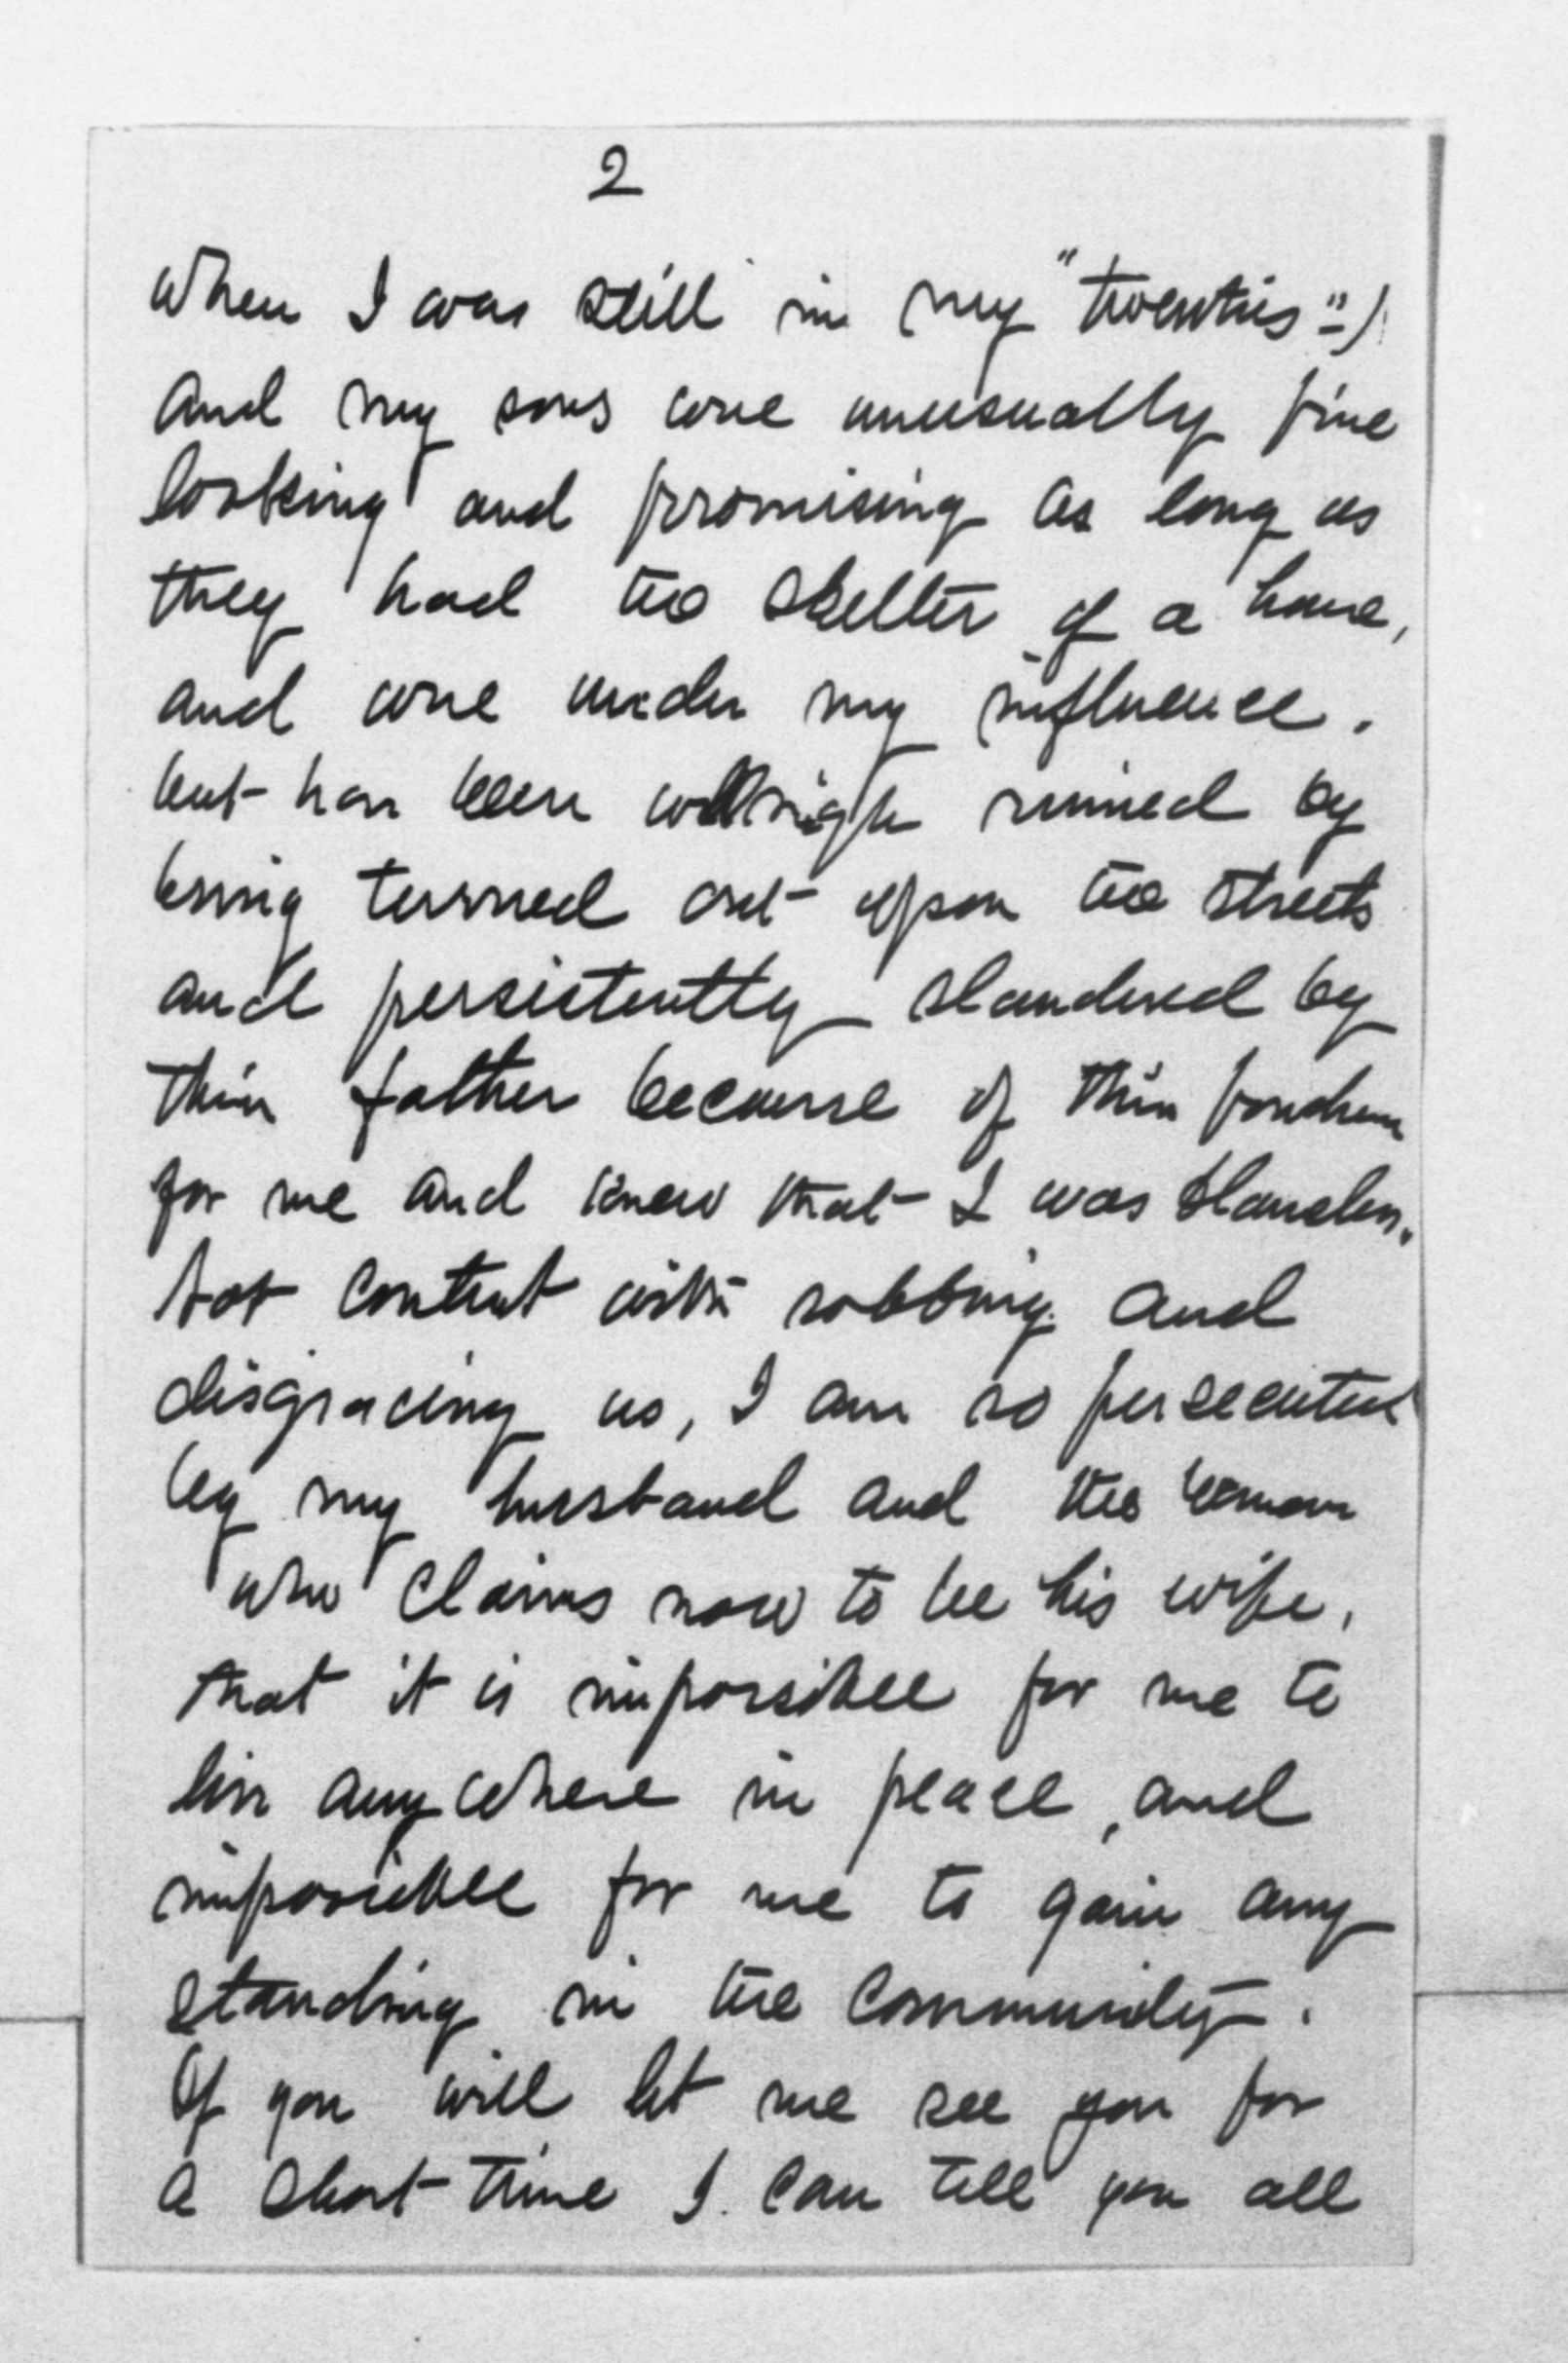 2
when I was still in my "twenties")
and my sons were unusually fine
looking and promising as long as
they had the shelter of a home,
and were under my influence.
but have been wellnigh ruined by
being turned out upon the streets
and persistently slandered by
their father because of their fondness
for me and knew that I was blameless.
Not content with robbing and
disgracing us, I am so persecuted
by my husband and the woman
who claims now to be his wife,
that it is impossible for me to
live anywhere in peace, and
impossible for me to gain any
standing in the community.
If you will let me see you for
a short time I can tell you all